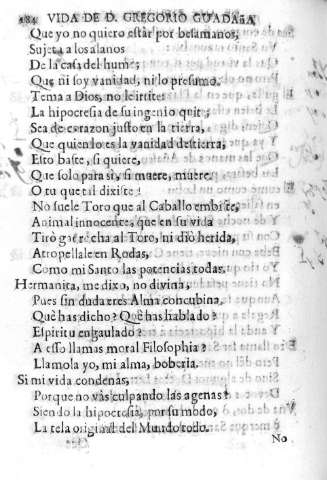 284 VIDA DE D. GREGORIO GUADAñA
Que yo no quiero estàr por besamanos,
Sujeta a los alanos
De la casa del humo;
Que ni soy vanidad, ni lo presumo.
Tema a Dios, no le irrite
La hipocresia de su ingenio quit
Sea de corazon justo en la tierra,
Que quien lo es la vanidad destierra,
Esto baste, si quiere,
Que solo para si, si muere, muere.
O tu que tal dixiste!
No suele Toro que al Caballo embiste,
Animal innocente, que en su vida
Tirò garrocha al Toro, ni diò herida,
Atropellale en Rodas,
Como mi Santo las potencias todas.
Hermanita, me dixo, no divina,
Pues sin duda eres Alma concubina,
Què has dicho? Què has hablado?
Espiritu engaulado?
A esso llamas moral Filosophia?
Llamola yo, mi alma, boberia.
Si mi vida condenàs,
Porque no vàs culpando las agenas?
Siendo la hipocresia, por su modo,
La tela original del Mundo todo.
No